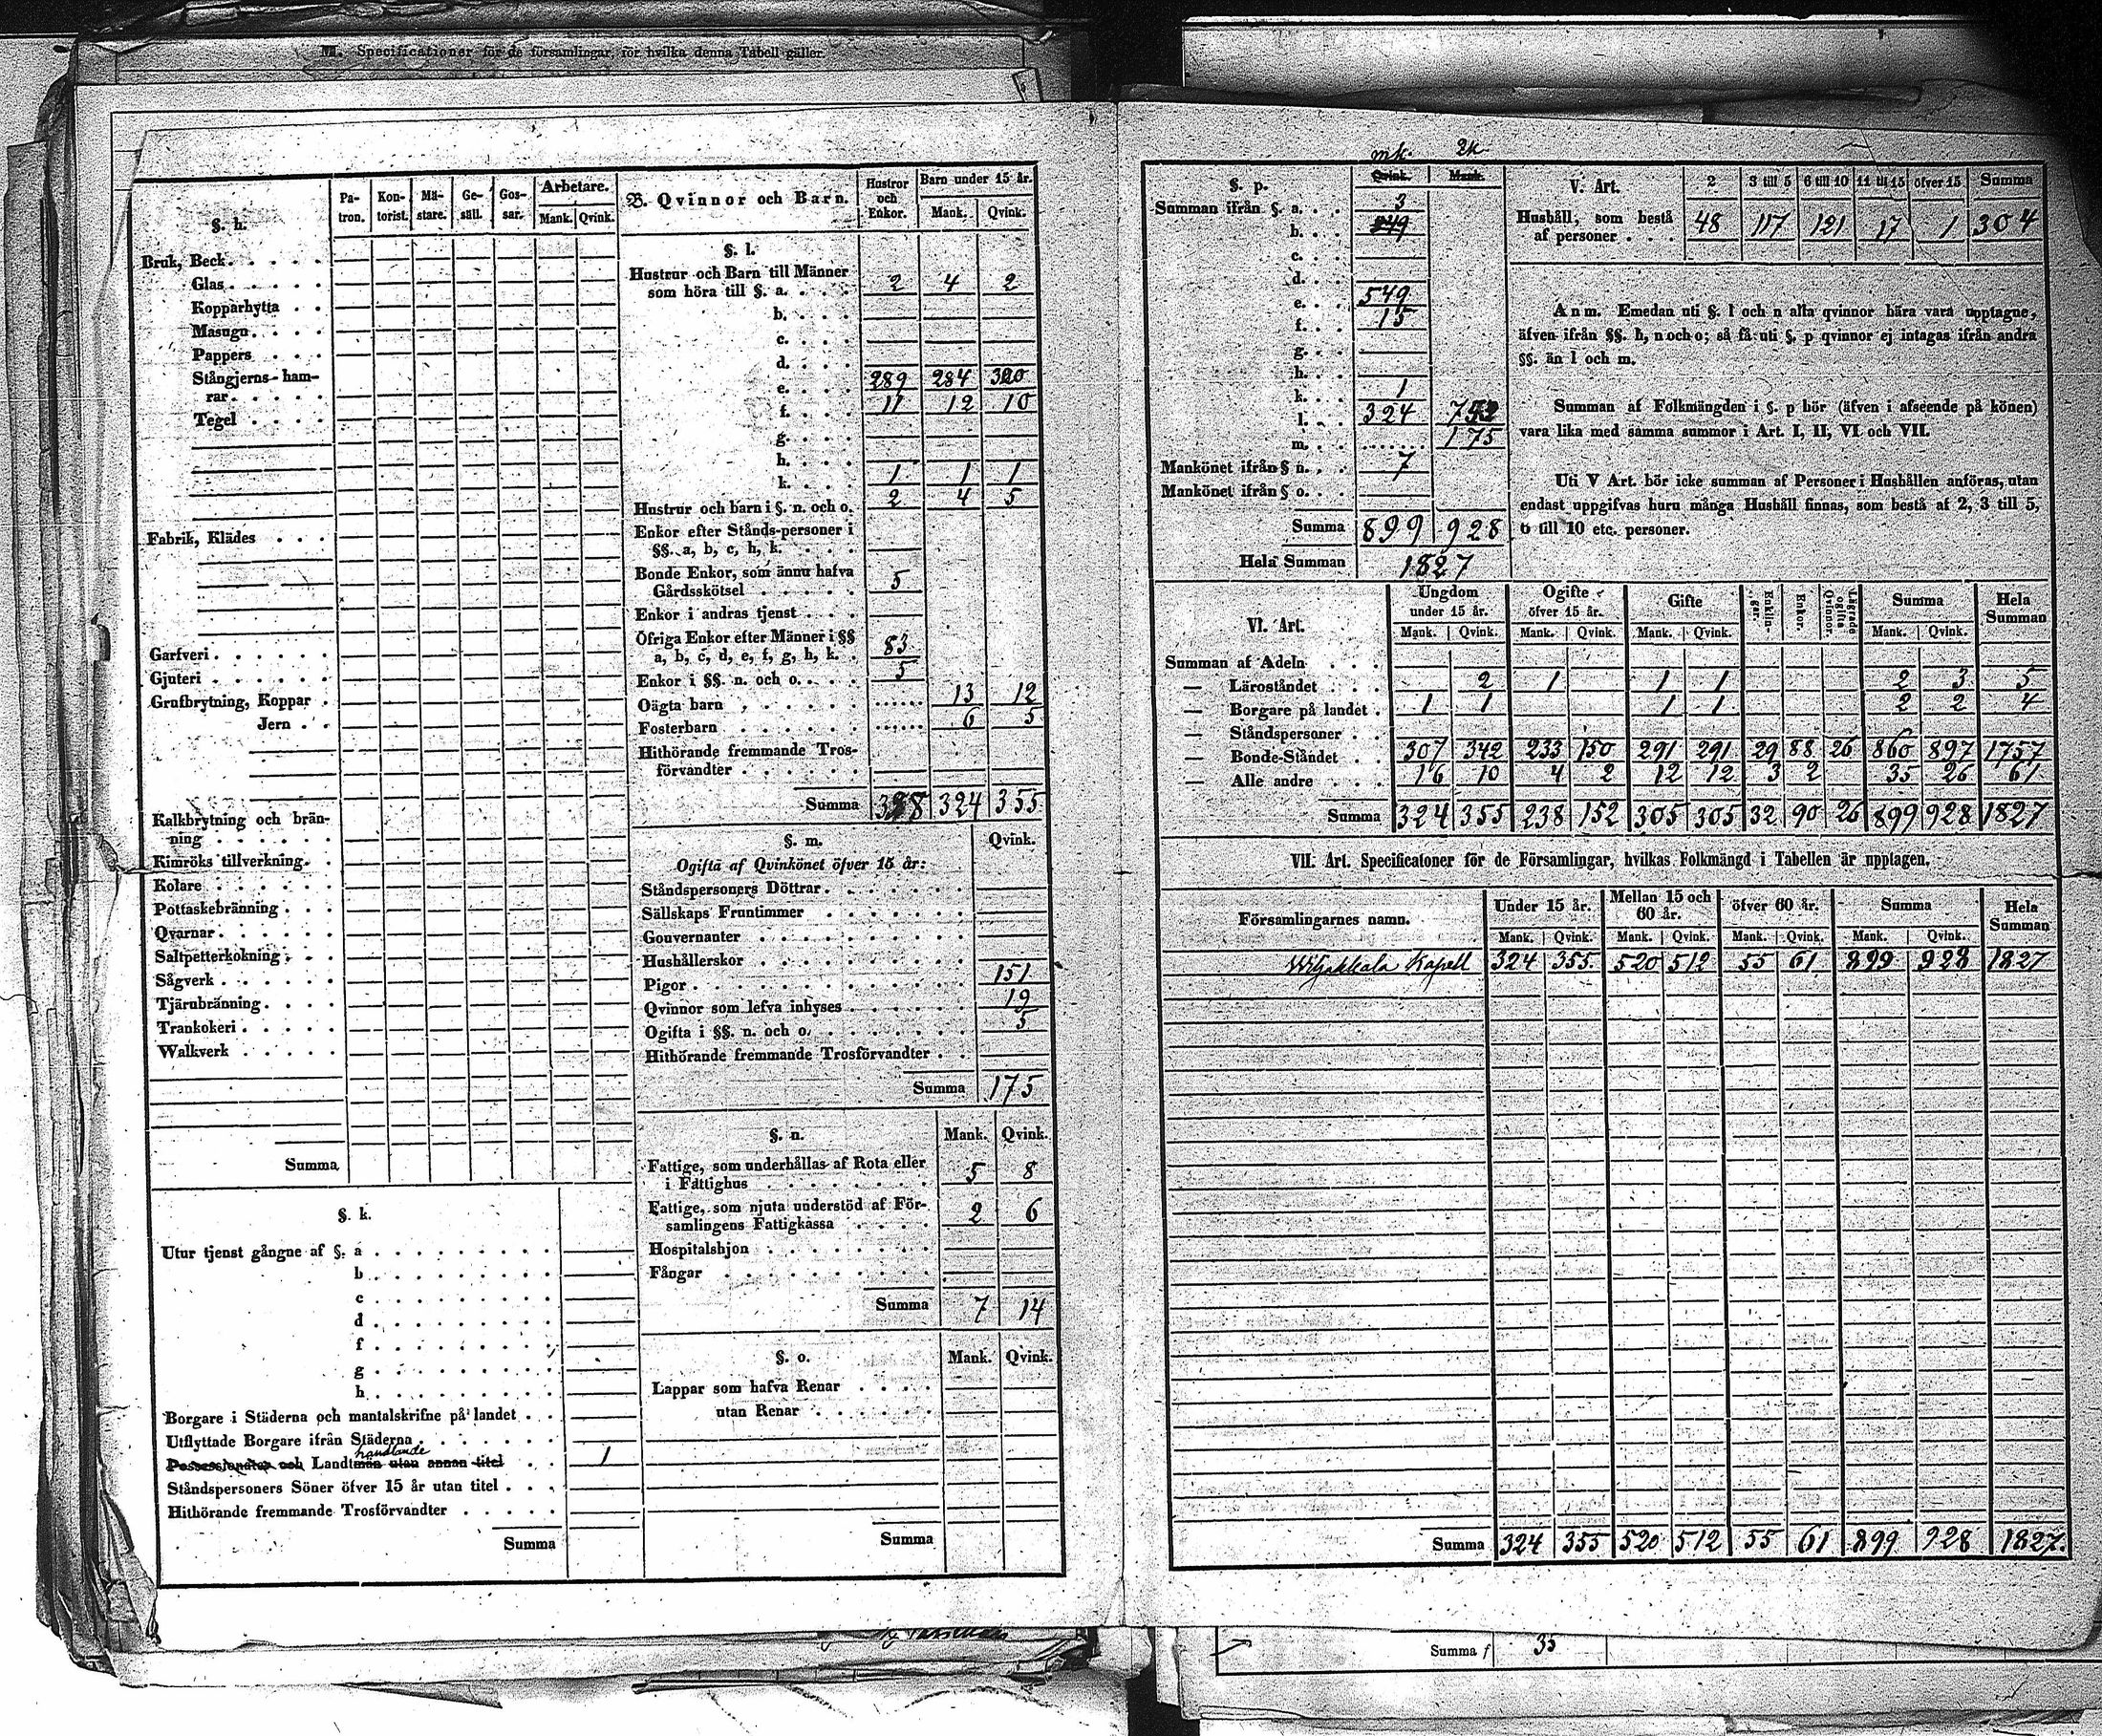 M. Specificationer för de församlingar, för hvilka denna Tabell gäller.
§. h.
Pa-tron. Kon-torist. Mä-stare. Ge-säll. Gos-sar. Arbetare. Mank. Qvink.
Bruk, Beck
Glas
Kopparhytta
Masugn
Pappers
Stångjerns-ham-
rar
Tegel
Fabrik, Klädes
Garfveri
Gjuteri
Grufbrytning, Koppar
Jern
Kalkbrytning och brän-
ning
Kimröks tillverkning
Kolare
Pottaskebränning
Qvarnar
Saltpetterkokning
Sågverk
Tjärubränning
Trankokeri
Walkverk
Summa
§. k.
Utur tjenst gångne af §. a
b
c
d
f
g
h
Borgare i Städerna och mantalskrifne på landet
Utflyttade Borgare ifrån Städerna
handlande
Possessionater och Landtmän utan annan titel 1
Ståndspersoners Söner öfver 15 år utan titel
Hithörande fremmande Trosförvandter
Summa
B. Qvinnor och Barn. Hustrur och Enkor. Barn under 15 år. Mank. Qvink.
§. l.
Hustrur och Barn till Männer
som höra till §. a. 2 4 2
b.
c.
d.
e. 289 284 320
f. 11 12 10
g.
h.
k. 1 1 1
Hustrur och barn i §. n. och o. 2 4 5
Enkor efter Stånds-personer i
§§. a, b, c, h, k.
Bonde Enkor, som ännu hafva
Gårdsskötsel 5
Enkor i andras tjenst
Öfriga Enkor efter Männer i §§
a, b, c, d, e, f, g, h, k. 83
Enkor i §§. n. och o. 5
Oägta barn 13 12
Fosterbarn 6 5
Hithörande fremmande Tros-
förvandter
Summa 398 324 355
§. m. Qvink.
Ogifta af Qvinkönet öfver 15 år:
Ståndspersoners Döttrar
Sällskaps Fruntimmer
Gouvernanter
Hushållerskor
Pigor 151
Qvinnor som lefva inhyses 19
Ogifta i §§. n. och o. 5
Hithörande fremmande Trosförvandter
Summa 175
§. n. Mank. Qvink.
Fattige, som underhållas af Rota eller
i Fattighus 5 8
Fattige, som njuta understöd af För-
samlingens Fattigkassa 2 6
Hospitalshjon
Fångar
Summa 7 14
§. o. Mank. Qvink.
Lappar som hafva Renar
utan Renar
Summa
mk. 2k.
§. p. Qvink. Mank.
Summan ifrån §. a. 3
b.
c.
d.
e. 549
f. 15
g.
h.
k. 1
l. 324 753
m. 175
Mankönet ifrån § n. 7
Mankönet ifrån § o.
Summa 899 928
Hela Summan 1827
V. Art. 2 3 till 5 6 till 10 11 till 15 öfver 15 Summa
Hushåll, som bestå
af personer 48 117 121 17 1 304
Anm. Emedan uti §. l och n alla qvinnor böra vara upptagne,
äfven ifrån §§. h, n och o; så få uti §. p qvinnor ej intagas ifrån andra
§§. än l och m.
Summan af Folkmängden i §. p bör (äfven i afseende på könen)
vara lika med samma summor i Art. I, II, VI och VII.
Uti V Art. bör icke summan af Personer i Hushållen anföras, utan
endast uppgifvas huru många Hushåll finnas, som bestå af 2, 3 till 5,
6 till 10 etc. personer.
VI. Art. Ungdom under 15 år. Ogifte öfver 15 år. Gifte Enklin-gar. Enkor. Lägrade ogifta Qvinnor. Summa Hela Summan
Mank. Qvink. Mank. Qvink. Mank. Qvink. Mank. Qvink.
Summan af Adeln
— Läroståndet 2 1 1 1 2 3 5
— Borgare på landet 1 1 1 1 2 2 4
— Ståndspersoner
— Bonde-Ståndet 307 342 233 150 291 291 29 88 26 860 897 1757
— Alle andre 16 10 4 2 12 12 3 2 35 26 61
Summa 324 355 238 152 305 305 32 90 26 899 928 1827
VII. Art. Specificatoner för de Församlingar, hvilkas Folkmängd i Tabellen är upptagen.
Församlingarnes namn. Under 15 år. Mellan 15 och 60 år. öfver 60 år. Summa Hela Summan
Mank. Qvink. Mank. Qvink. Mank. Qvink. Mank. Qvink.
Wiljakkala Kapell 324 355 520 512 55 61 899 928 1827
Summa 324 355 520 512 55 61 899 928 1827.
Summa f 35